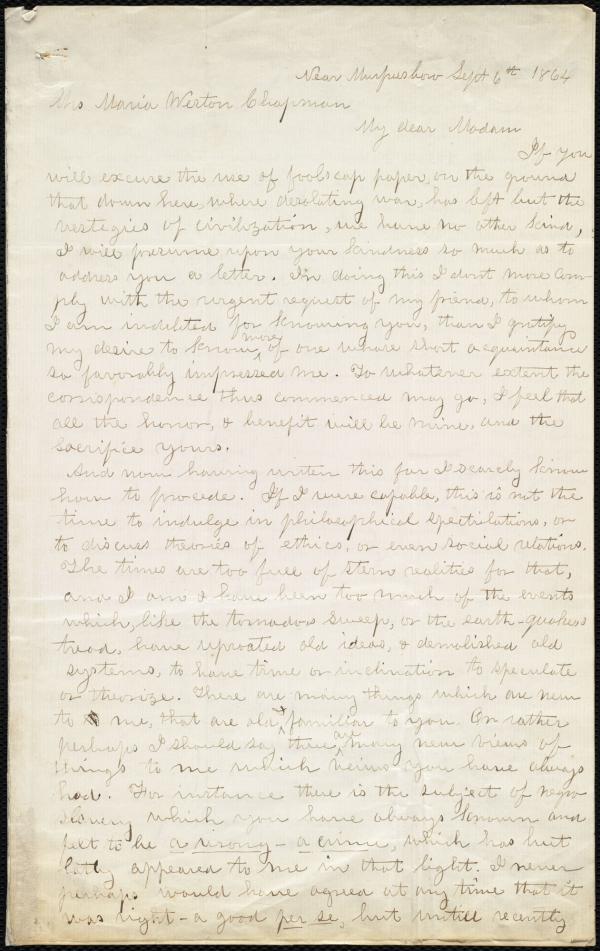 Near Murfreesboro Sept 6th 1864
Mrs Maria Weston Chapman
My dear Madam
If you
will excuse the use of foolscap paper, on the ground
that down here, where desolating war, has left but the
vestegies of civilization, we have no other kind,
I will presume upon your kindness so much as to
address you a letter. In doing this I dont more com-
ply with the urgent request of my friend, to whom
I am indebted for knowing you, than I gratify
my desire to know more of one whose short acquaintance
so favorably impressed me. To whatever extent the
correspondence thus commenced may go, I feel that
all the honor, & benefit will be mine, and the
sacrifice yours.
And now having writen this far I scarcely know
how to procede. If I were capable, this is not the
time to indulge in philosophical spectilations, or
to discuss theories of ethics, or even social relations.
The times are too full of stern realities for that,
and I am & have been too much of the events
which, like the tornados sweep, or the earth-quakes
tread, have uproated old ideas, & demolished old
systems, to have time or inclination to speculate
or theorize. There are many things which are new
to me, that are old & familiar to you. Or rather
perhaps I should say there are many new views of
things to me which views you have always
had. For instance there is the subject of negro
slavery which you have always known and
felt to be a wrong - a crime, which has but
latly appeared to me in that light. I never
perhaps would have agreed at any time that it
was right - a good per se, but untill recently